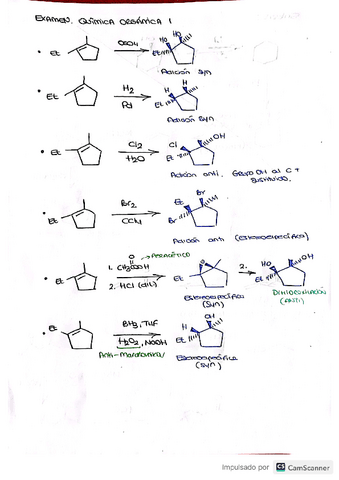 EXAMEN. QUÍMICA ORGÁNICA 1
Et OsO4 HO OH Et
Adición syn
Et H2 Pd H H Et
Adición syn
Et Cl2 H2O Cl OH Et
Adición anti. Grupo OH al C +
sustituido.
Et Br2 CCl4 Et Br Br
Adición anti (Estereoespecífica)
PERACÉTICO
Et 1. CH3COOOH 2. HCl (dil) Et O 2. HO OH Et
Estereoespecífica
(syn)
DIHIDROXILACIÓN
(ANTI)
Et BH3, THF H2O2, NaOH H OH Et
Anti-Markovnikov
Estereoespecífica
(syn)
Impulsado por CS CamScanner